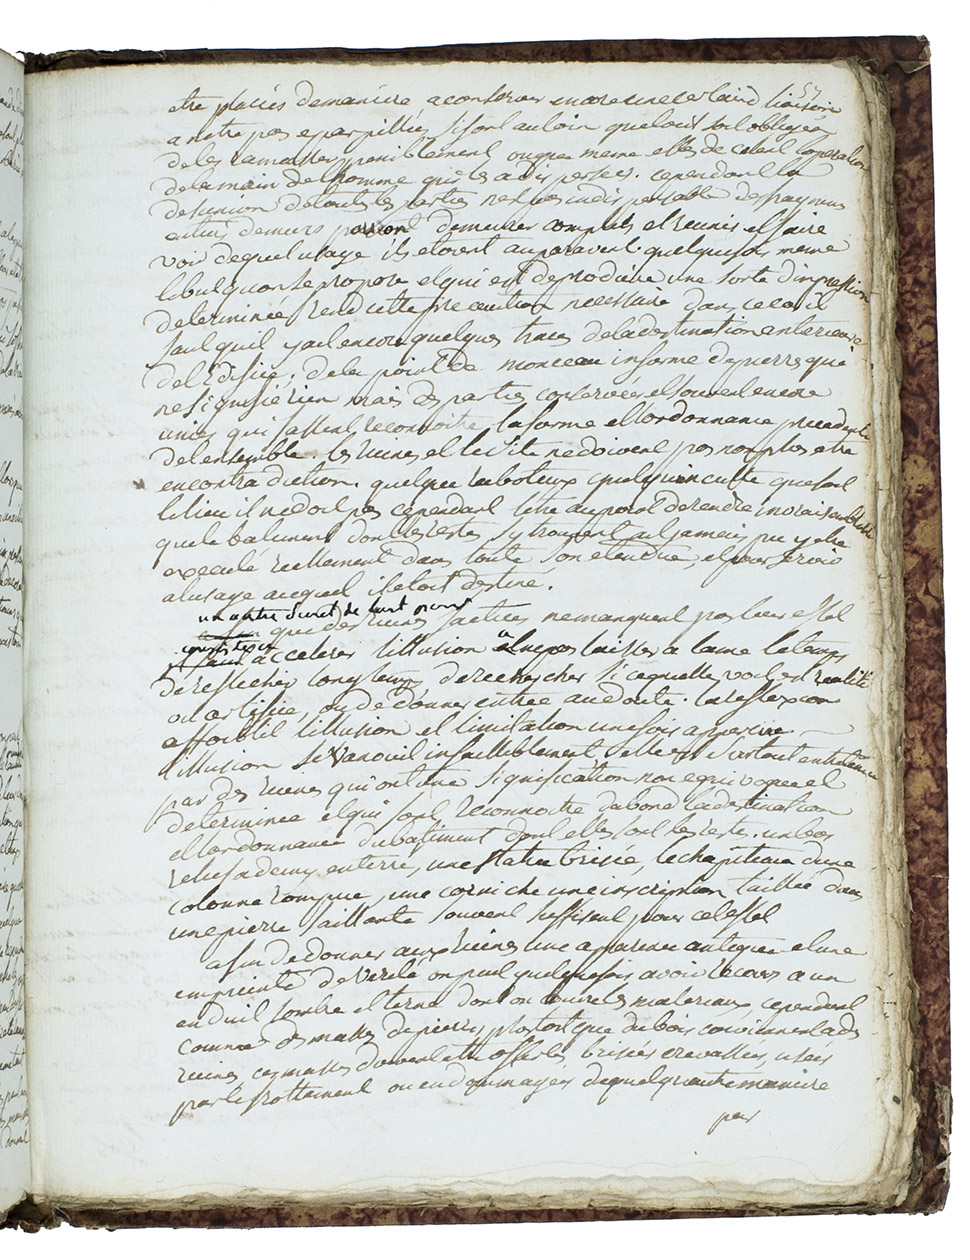 57
etre placées de maniere a conserver encore une certaine liaison
a n'etre pas eparpillées si fort au loin quelon soit obligés
de les ramasser peniblement ou que meme elles decele l'operation
de la main de l'homme qui les a dispersées. cependant la
desunion de toutes les parties nest pas indispensable des fragmens
entiers de murs pouront demeurer complets et reunis et faire
voir dequel usage ils etoient auparavent. quelquefois meme
le but quon se propose et qui est de produire une sorte d'impression
determinée rend cette precaution necessaire dans ce cas il
faut quil y ait encore quelques traces de la destination anterieure
de l'Edifice; de la point de monceau informe de pierres qui
ne signifie rien mais des parties conservées et souvent encore
unies qui fassent reconnoitre la forme et l'ordonnance precedente
de l'ensemble. les ruines et le site nedoivent pas non plus etre
en contradiction. quelque raboteux quelqu'inculte que soit
le lieu il ne doit pas cependant l'etre au point de rendre invraisemblable
que le batiment dont les restes sy trouvent ait jamais pu y etre
executé reellement dans toute son etendue, et pour servir
a l usage auquel il etoit destiné.
un autre
que des ruines factices ne manquent pas leur effet
accelerer l'illusion ne pas laisser a l'ame le temps
de reflechir longtemps de rechercher si ce quelle voit est realité
ou artifice, ou de donner entrée au doute. la reflexion
affoiblit l'illusion et l'imitation une fois apperçue
l'illusion s'evanouit infailliblement elle est surtout entretenue
par des ruines qui ont une signification non equivoque et
determinée et qui font reconnoitre dabord la destination
et l'ordonnance du batiment dont elles sont les restes. un bas
relief a demy enterré, une statue brisée, le chapiteau d'une
colonne rompue, une corniche une inscription taillée dans
une pierre saillante souvent suffisent pour cet effet
afin de donner aux ruines une apparence antique et une
empreinte de verité on peut quelquefois avoir recours a un
enduit sombre et terne dont on couvre les materiaux, cependant
comme des masses de pierres plustost que du bois conviennent a des
ruines ces masses doivent etre offertes brisées crevassées, usées
par le frottement ou endommagées de quelqu'autre maniere
par